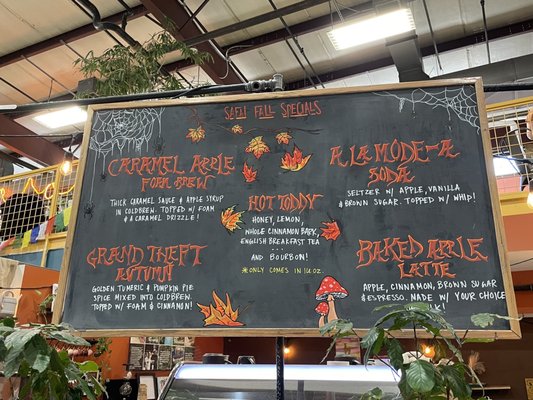 SAFU FALL SPECIALS
CARAMEL APPLE
FOAM BREW
THICK CARAMEL SAUCE & APPLE SYRUP
IN COLDBREW. TOPPED W/ FOAM
& A CARAMEL DRIZZLE!
GRAND THEFT
AUTUMN
GOLDEN TUMERIC & PUMPKIN PIE
SPICE MIXED INTO COLDBREW.
TOPPED W/ FOAM & CINNAMON!
HOT TODDY
HONEY, LEMON,
WHOLE CINNAMON BARK,
ENGLISH BREAKFAST TEA
...
AND BOURBON!
*ONLY COMES IN 16 OZ
A LA MODE-A
SODA
SELTZER W/ APPLE, VANILLA
& BROWN SUGAR. TOPPED W/ WHIP!
BAKED APPLE
LATTE
APPLE, CINNAMON, BROWN SUGAR
& ESPRESSO. MADE W/ YOUR CHOICE